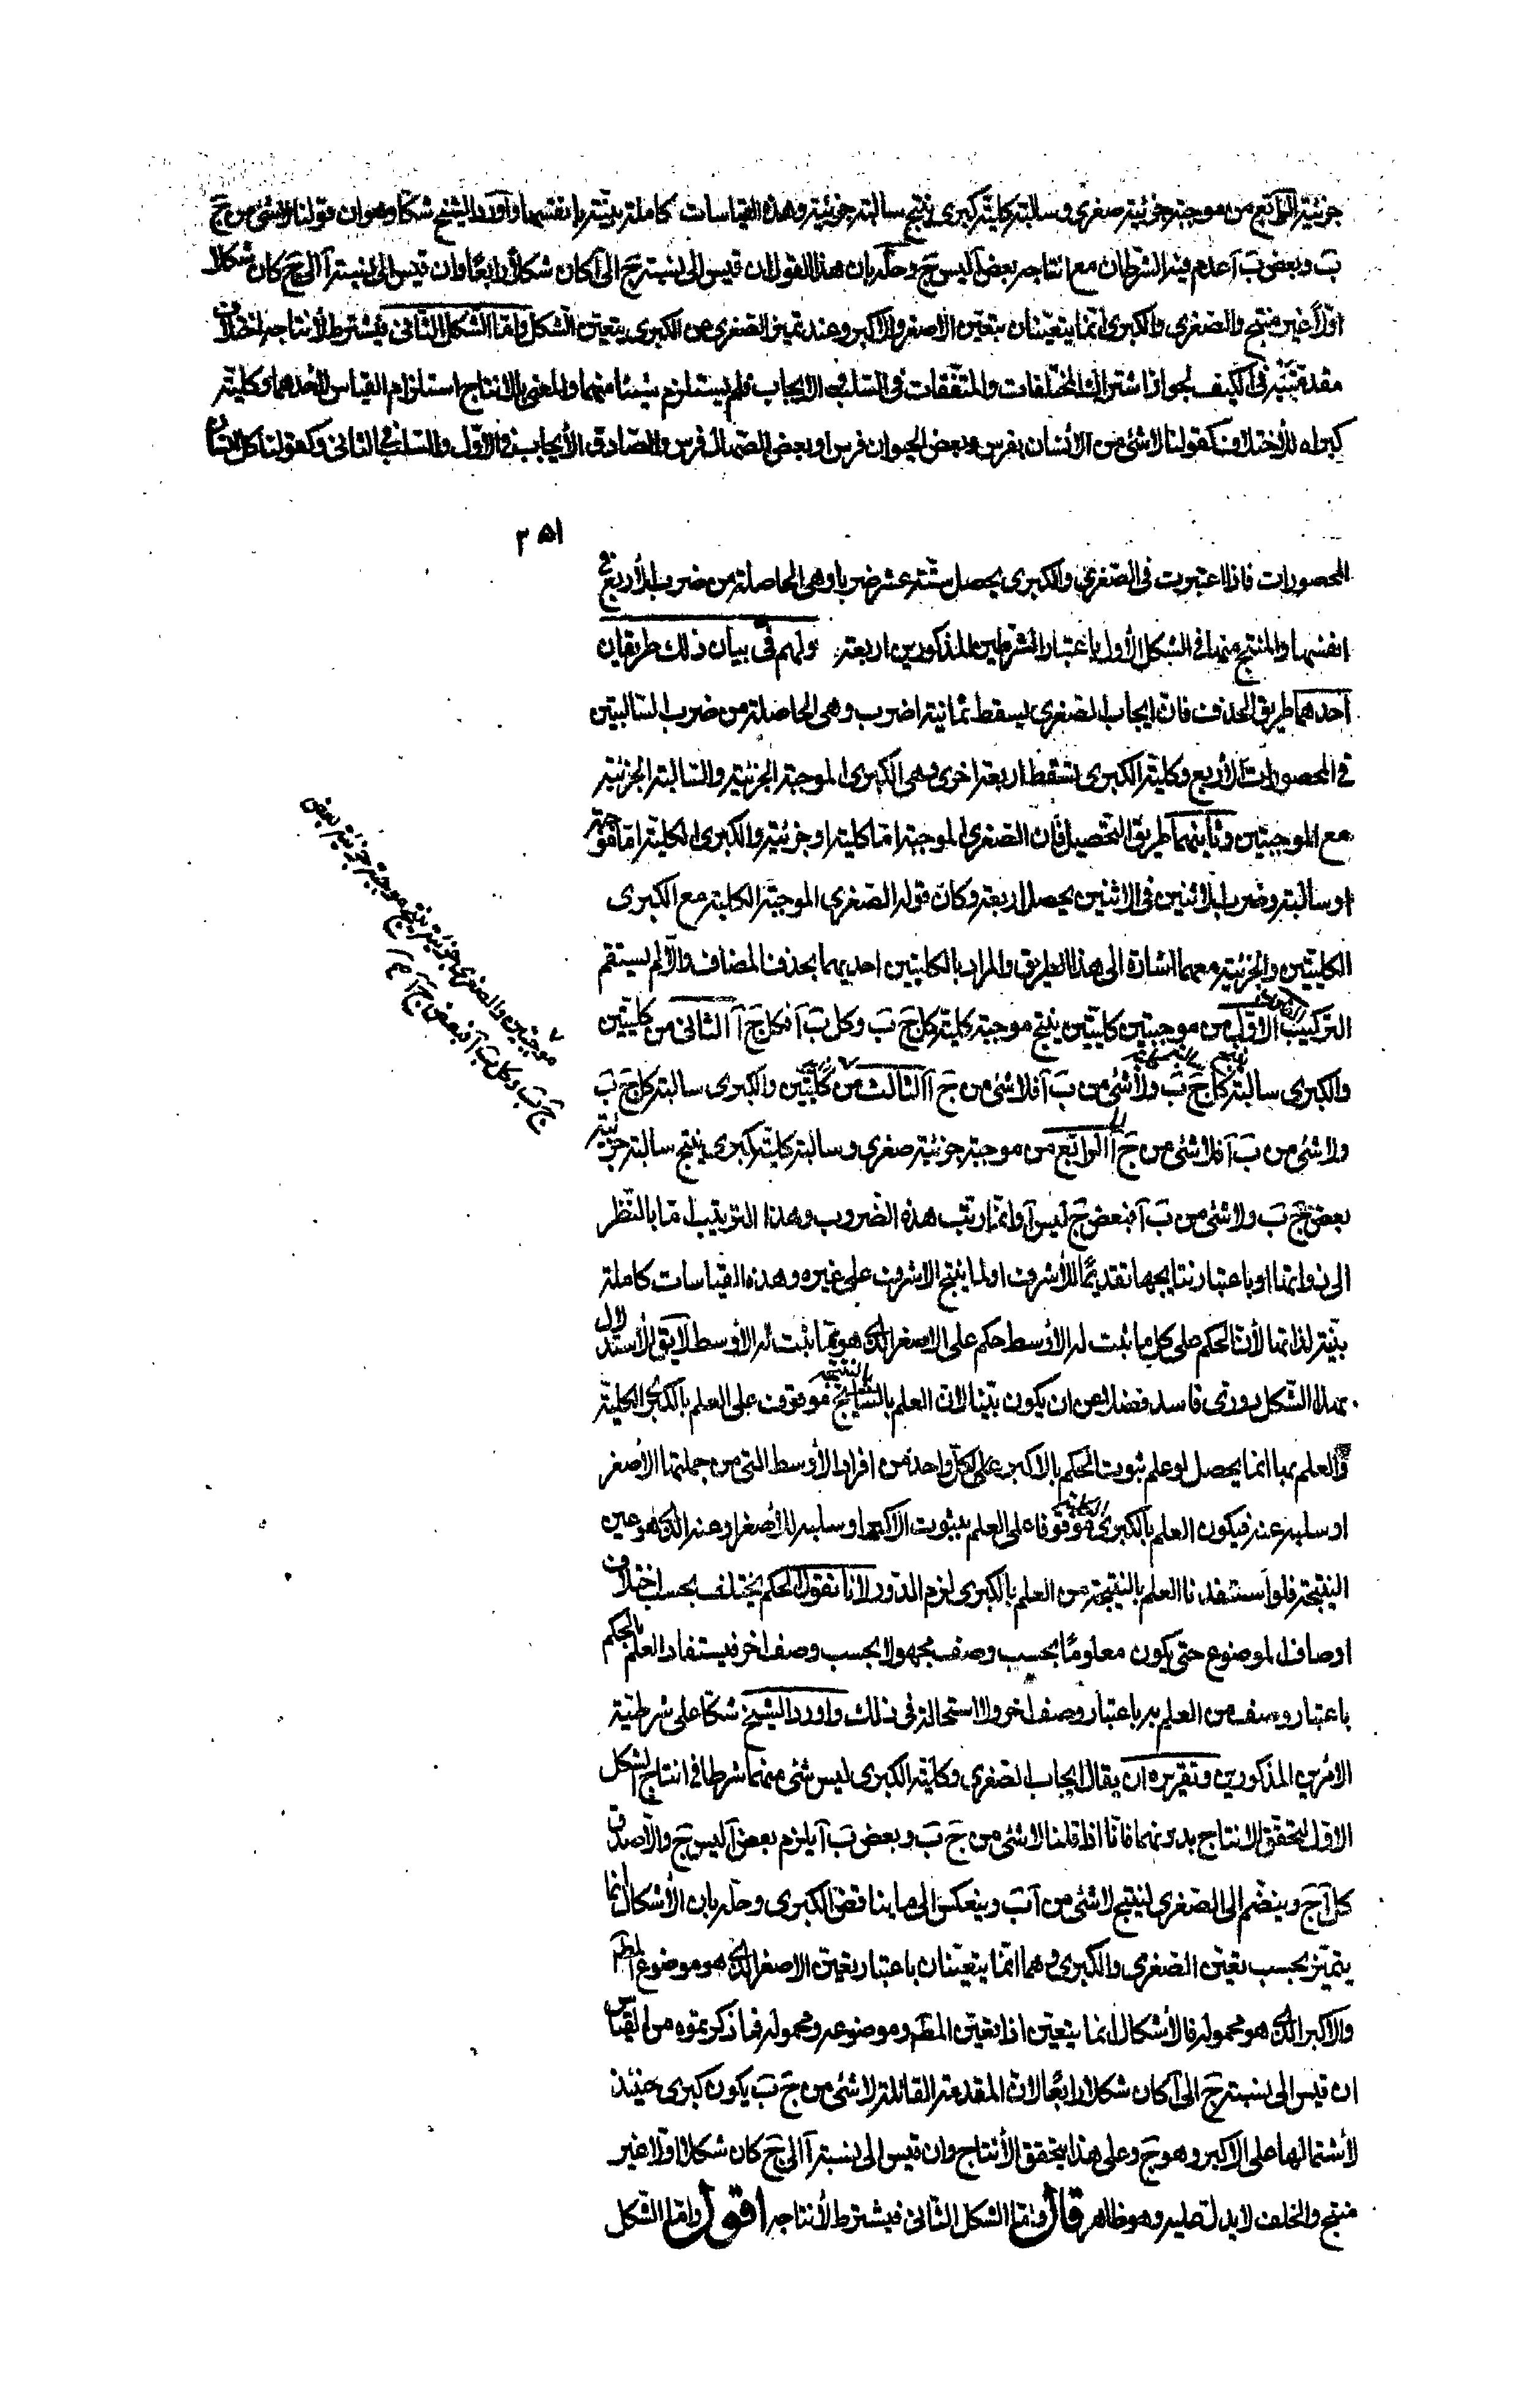 جزئية الرابع من موجبة جزئية صغرى وسالبة كلية كبرى ينتج سالبة جزئية وهذه القياسات كاملة بينة بانفسها واورد الشيخ شكا وهو ان قولنا لا شئ من جَ
بَ وبعض بَ آ عدم فيه الشرطان مع انتاجه بعض آ ليس جَ وحله بان هذا القول ان قيس الى نسبة جَ الى آ كان شكلا رابعًا وان قيس الى نسبة آ الى جَ كان شكلا
اولاً غير منتج والصغرى والكبرى انما يتعينان بتعين الاصغر والاكبر وعند تميز الصغرى عن الكبرى يتعين الشكل واما الشكل الثانى فيشترط لانتاجه اختلاف
مقدمتيه فى الكيف لجواز اشتراك المختلفات والمتفقات فى السلب والايجاب فلم يستلزم شيئا منهما والمعنى بالانتاج استلزام القياس لاحدهما وكلية
كبراه للاختلاف كقولنا لا شئ من الانسان بفرس وبعض الحيوان فرس او بعض الصهال فرس والصادق الايجاب فى الاول والسلب فى الثانى وكقولنا كل
٣٥١
المحصورات فاذا اعتبرت فى الصغرى والكبرى يحصل ستة عشر ضربا وهى الحاصلة من ضرب الاربع فى
انفسها والمنتج منها فى الشكل الاول باعتبار الشرطين المذكورين اربعة ولهم فى بيان ذلك طريقان
احدهما طريق الحذف فان ايجاب الصغرى يسقط ثمانية اضرب وهى الحاصلة من ضرب السالبتين
فى المحصورات الاربع وكلية الكبرى تسقط اربعة اخرى وهى الكبرى الموجبة الجزئية والسالبة الجزئية
مع الموجبتين وثانيهما طريق التحصيل فان الصغرى الموجبة اما كلية او جزئية والكبرى الكلية اما موجبة
او سالبة وضرب الاثنين فى الاثنين يحصل اربعة وكان قوله الصغرى الموجبة الكلية مع الكبرى
الكليتين والجزئية معهما اشارة الى هذا الطريق والمراد بالكليتين احديهما بحذف المضاف والا لم يستقم
التركيب الاول من موجبتين كليتين ينتج موجبة كلية كل جَ بَ وكل بَ آ فكل جَ آ الثانى من كليتين
والكبرى سالبة كل جَ بَ ولا شئ من بَ آ فلا شئ من جَ آ الثالث من كليتين والكبرى سالبة كل جَ بَ
ولا شئ من بَ آ فلا شئ من جَ آ الرابع من موجبة جزئية صغرى وسالبة كلية كبرى ينتج سالبة جزئية
بعض جَ بَ ولا شئ من بَ آ فبعض جَ ليس آ وانما رتب هذه الضروب وهذا الترتيب اما بالنظر
الى ذواتها او باعتبار نتايجها تقديمًا للاشرف او لما ينتج الاشرف على غيره وهذه القياسات كاملة
بينة لذاتها لان الحكم على كل ما ثبت له الاوسط حكم على الاصغر الذى هو مما ثبت له الاوسط لا يق الاستدلال
بهذا الشكل دورى فاسد فضلا عن ان يكون بينا لان العلم بالنتيجة موقوف على العلم بالكبرى الكلية
والعلم بها انما يحصل لو علم ثبوت الحكم بالاكبر على كل واحد من افراد الاوسط التى من جملتها الاصغر
او سلبه عنه فيكون العلم بالكبرى موقوفا على العلم بثبوت الاكبر او سلبه للاصغر او عنه الذى هو عين
النتيجة فلو استفدنا العلم بالنتيجة من العلم بالكبرى لزم الدور لانا نقول الحكم يختلف بحسب اختلاف
اوصاف الموضوع حتى يكون معلومًا بحسب وصف مجهولا بحسب وصف اخر فيستفاد العلم بالحكم
باعتبار وصف من العلم به باعتبار وصف اخر ولا استحالة فى ذلك واورد الشيخ شكا على شرطية
الامرين المذكورين وتقريره ان يقال ايجاب الصغرى وكلية الكبرى ليس شئ منهما شرطا فى انتاج الشكل
الاول لتحقق الانتاج بدونهما فانا اذا قلنا لا شئ من جَ بَ وبعض بَ آ يلزم بعض آ ليس جَ والا صدق
كل آ جَ وينضم الى الصغرى لينتج لا شئ من آ بَ وينعكس الى ما يناقض الكبرى وحله بان الاشكال انما
يتميز بحسب تعين الصغرى والكبرى وهما انما يتعينان باعتبار تعين الاصغر الذى هو موضوع المط
والاكبر الذى هو محموله فالاشكال انما يتعين اذا تعين المط وموضوعه ومحموله فما ذكرتموه من القياس
ان قيس الى نسبة جَ الى آ كان شكلا رابعًا لان المقدمة القائلة لا شئ من جَ بَ يكون كبرى حينئذ
لاشتمالها على الاكبر وهو جَ وعلى هذا يتحقق الانتاج وان قيس الى نسبة آ الى جَ كان شكلا اولا غير
منتج والخلف لا يدل عليه وهو ظاهر قال واما الشكل الثانى فيشترط لانتاجه اقول واما الشكل
موجبتين والصغرى جزئية ينتج موجبة جزئية بعض
جَ بَ وكل بَ آ فبعض جَ آ